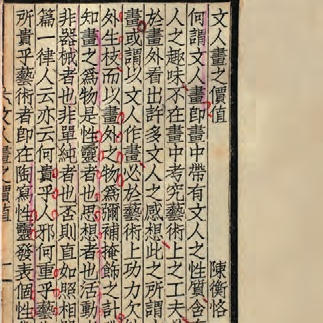 文人畫之價值
陳衡恪
何謂文人畫即畫中帶有文人之性質含
人之趣味不在畫中考究藝術上之工夫
於畫外看出許多文人之感想此之所謂
畫或謂以文人作畫必於藝術上功力欠
外生枝而以畫外之物為彌補掩飾之計
知畫之為物是性靈者也思想者也活動
非器械者也非單純者也否則直如照相
篇一律人云亦云何貴乎人邪何重乎藝
所貴乎藝術者即在陶寫性靈發表個性
文人畫之價值
一